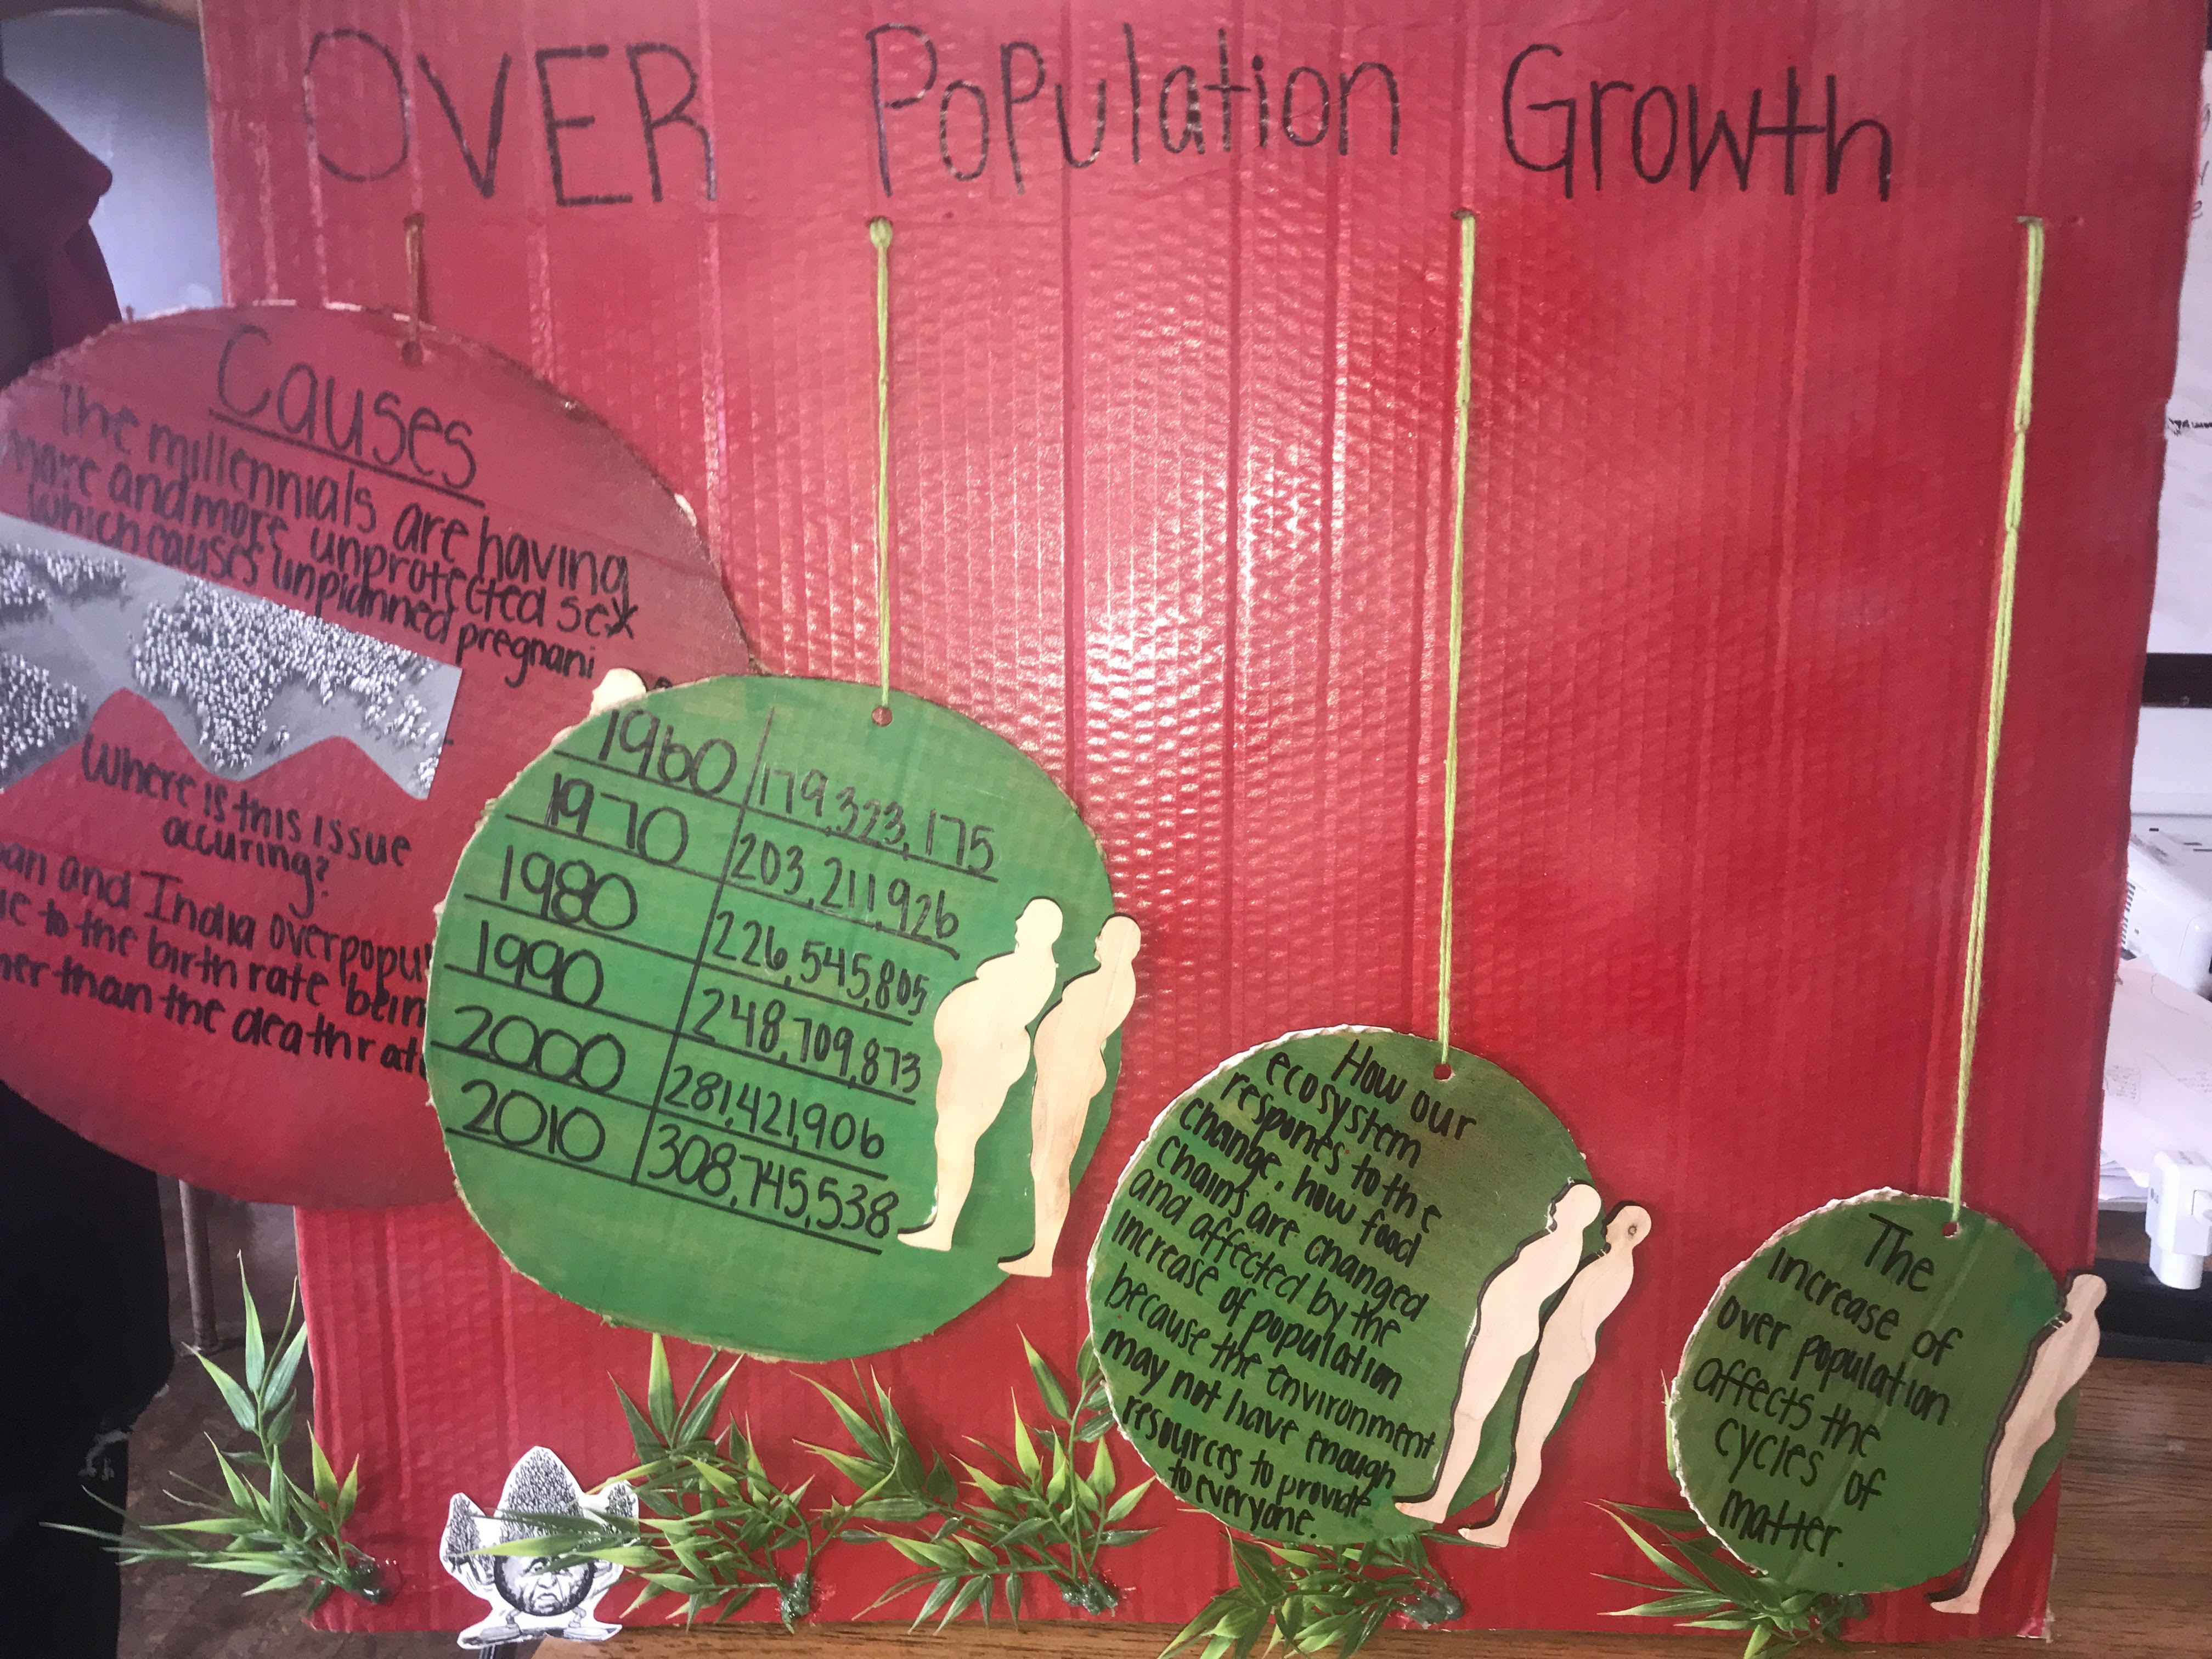 OVER Population Growth
Causes
The millennials are having
more and more unprotected sex
which causes unplanned pregnani
Where is this issue
occuring?
and India overpopul
to the birth rate bein
than the death rat
1960 179,323,175
1970 203,211,926
1980 226,545,805
1990 248,709,873
2000 281,421,906
2010 308,745,538
How our
ecosystem
respontes to the
change, how food
chains are changed
and affected by the
increase of population
because the environment
may not have enough
resources to provide
to everyone.
The
increase of
over population
affects the
cycles of
matter.